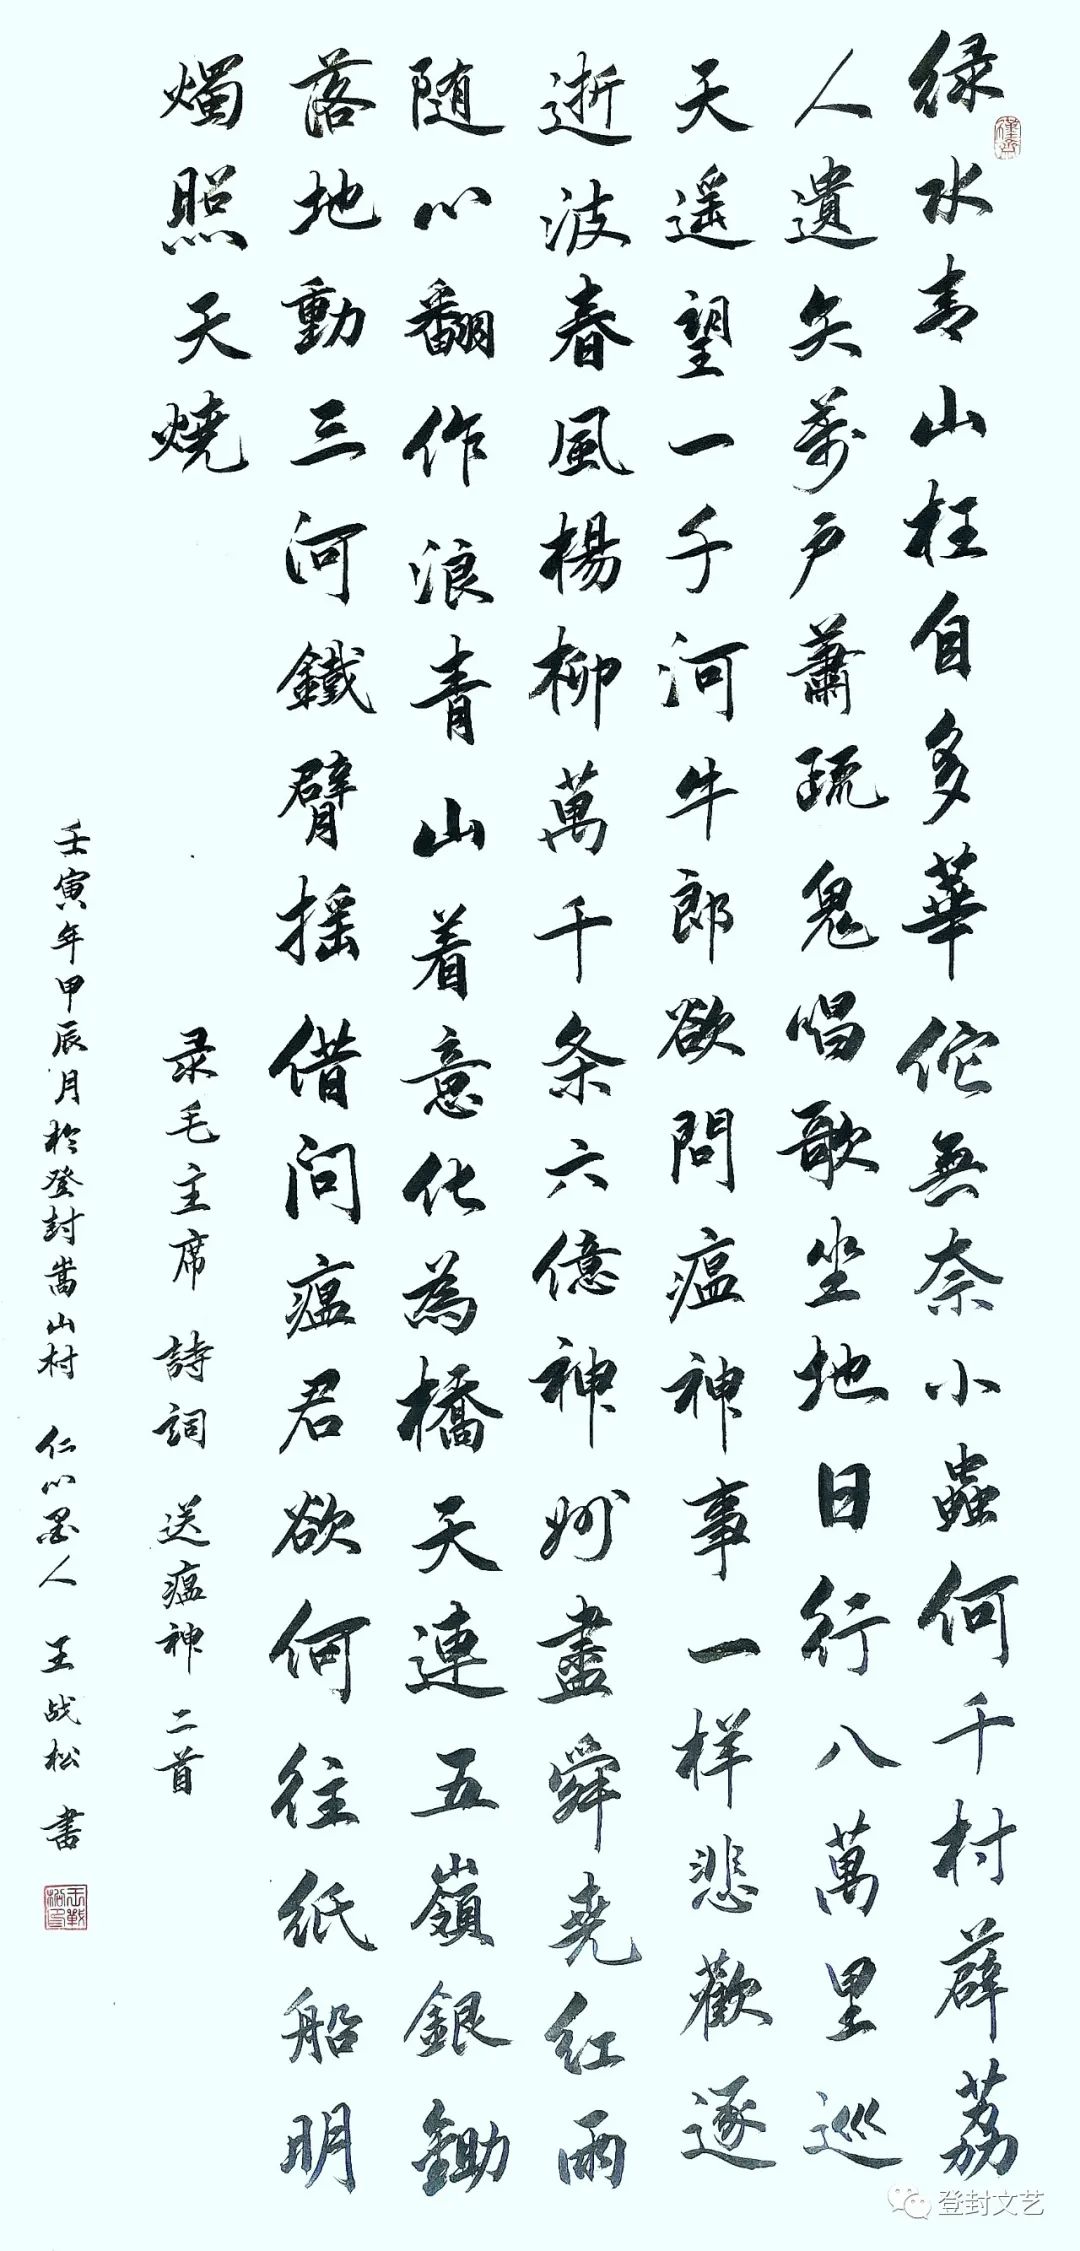 绿水青山枉自多華佗無奈小蟲何千村薜荔
人遺矢萬戶蕭疏鬼唱歌坐地日行八萬里巡
天遥望一千河牛郎欲問瘟神事一样悲歡逐
逝波春風楊柳萬千条六億神州盡舜堯红雨
随心翻作浪青山着意化為橋天連五嶺銀鋤
落地動三河鐵臂摇借问瘟君欲何往纸船明
燭照天燒
录毛主席 詩詞 送瘟神 二首
壬寅年甲辰月於登封嵩山村 仁心墨人 王战松 書
王戰松印
登封文艺